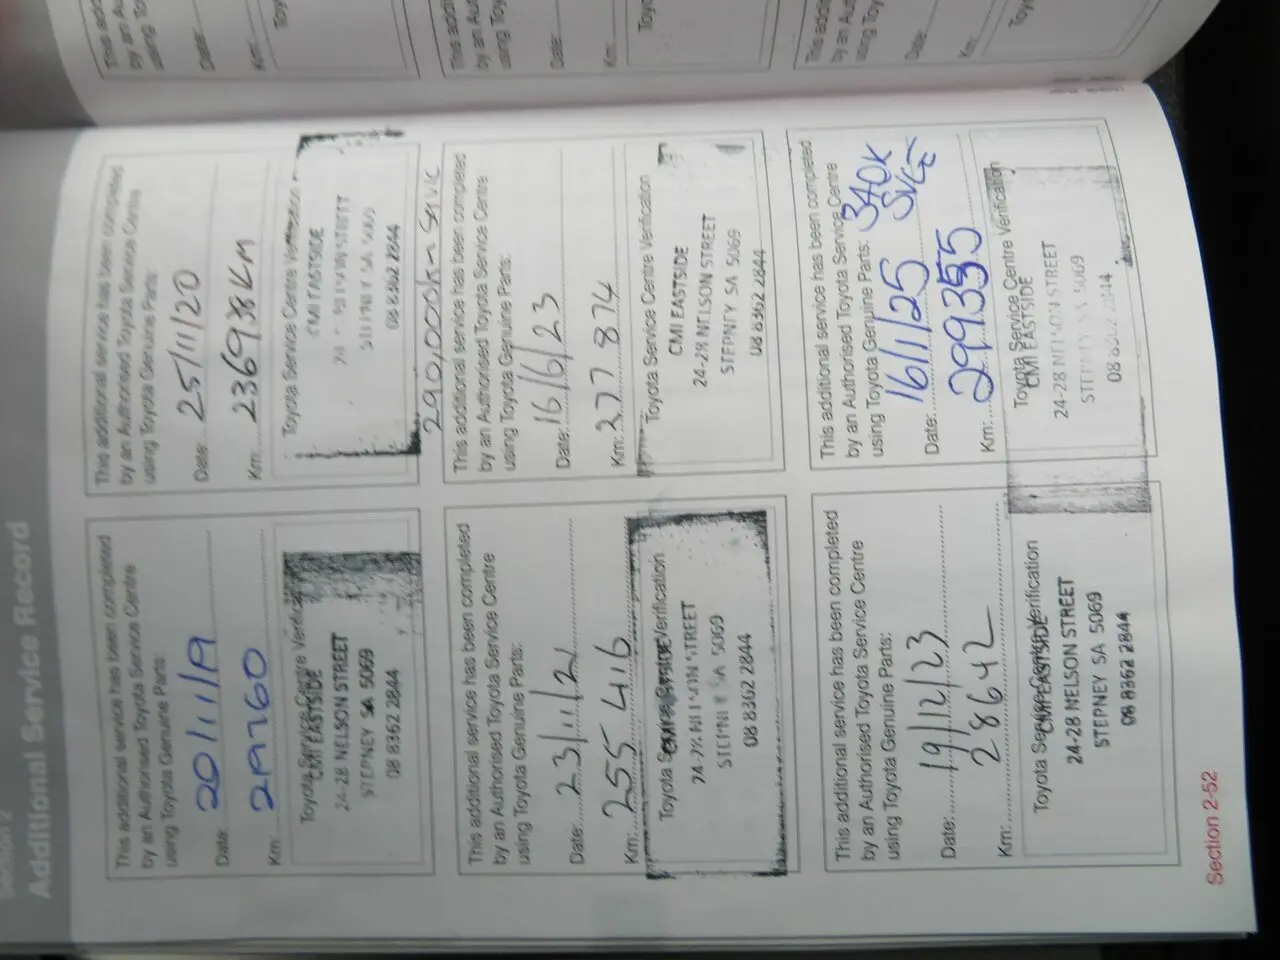 Section 2
Additional Service Record
This additional service has been completed
by an Authorised Toyota Service Centre
using Toyota Genuine Parts:
Date: 20/11/19
Km:
Toyota Service Centre Verification
CMI EASTSIDE
24-28 NELSON STREET
STEPNEY SA 5069
08 8362 2844
This additional service has been completed
by an Authorised Toyota Service Centre
using Toyota Genuine Parts:
Date: 25/11/20
Km: 236938km
Toyota Service Centre Verification
CMI EASTSIDE
STEPNEY SA 5069
08 8362 2844
This additional service has been completed
by an Authorised Toyota Service Centre
using Toyota Genuine Parts:
Date: 23/11/21
Km: 255 416
Toyota Service Centre Verification
CMI EASTSIDE
24-28 NELSON STREET
STEPNEY SA 5069
08 8362 2844
290,000km Service
This additional service has been completed
by an Authorised Toyota Service Centre
using Toyota Genuine Parts:
Date: 16/6/23
Km: 277 874
Toyota Service Centre Verification
CMI EASTSIDE
24-28 NELSON STREET
STEPNEY SA 5069
08 8362 2844
This additional service has been completed
by an Authorised Toyota Service Centre
using Toyota Genuine Parts:
Date: 19/12/23
Km: 28642
Toyota Service Centre Verification
CMI EASTSIDE
24-28 NELSON STREET
STEPNEY SA 5069
08 8362 2844
This additional service has been completed
by an Authorised Toyota Service Centre
using Toyota Genuine Parts: 340K
SVCE
Date: 16/1/25
Km: 299355
Toyota Service Centre Verification
CMI EASTSIDE
24-28 NELSON STREET
STEPNEY SA 5069
08 8362 2844
Section 2-52
This
by an Au
using To
Date:
Km:
Toy
This add
by an Au
using Toy
Date:
Km:
Toy
This add
by an A
using To
Date:
Km:
Toy